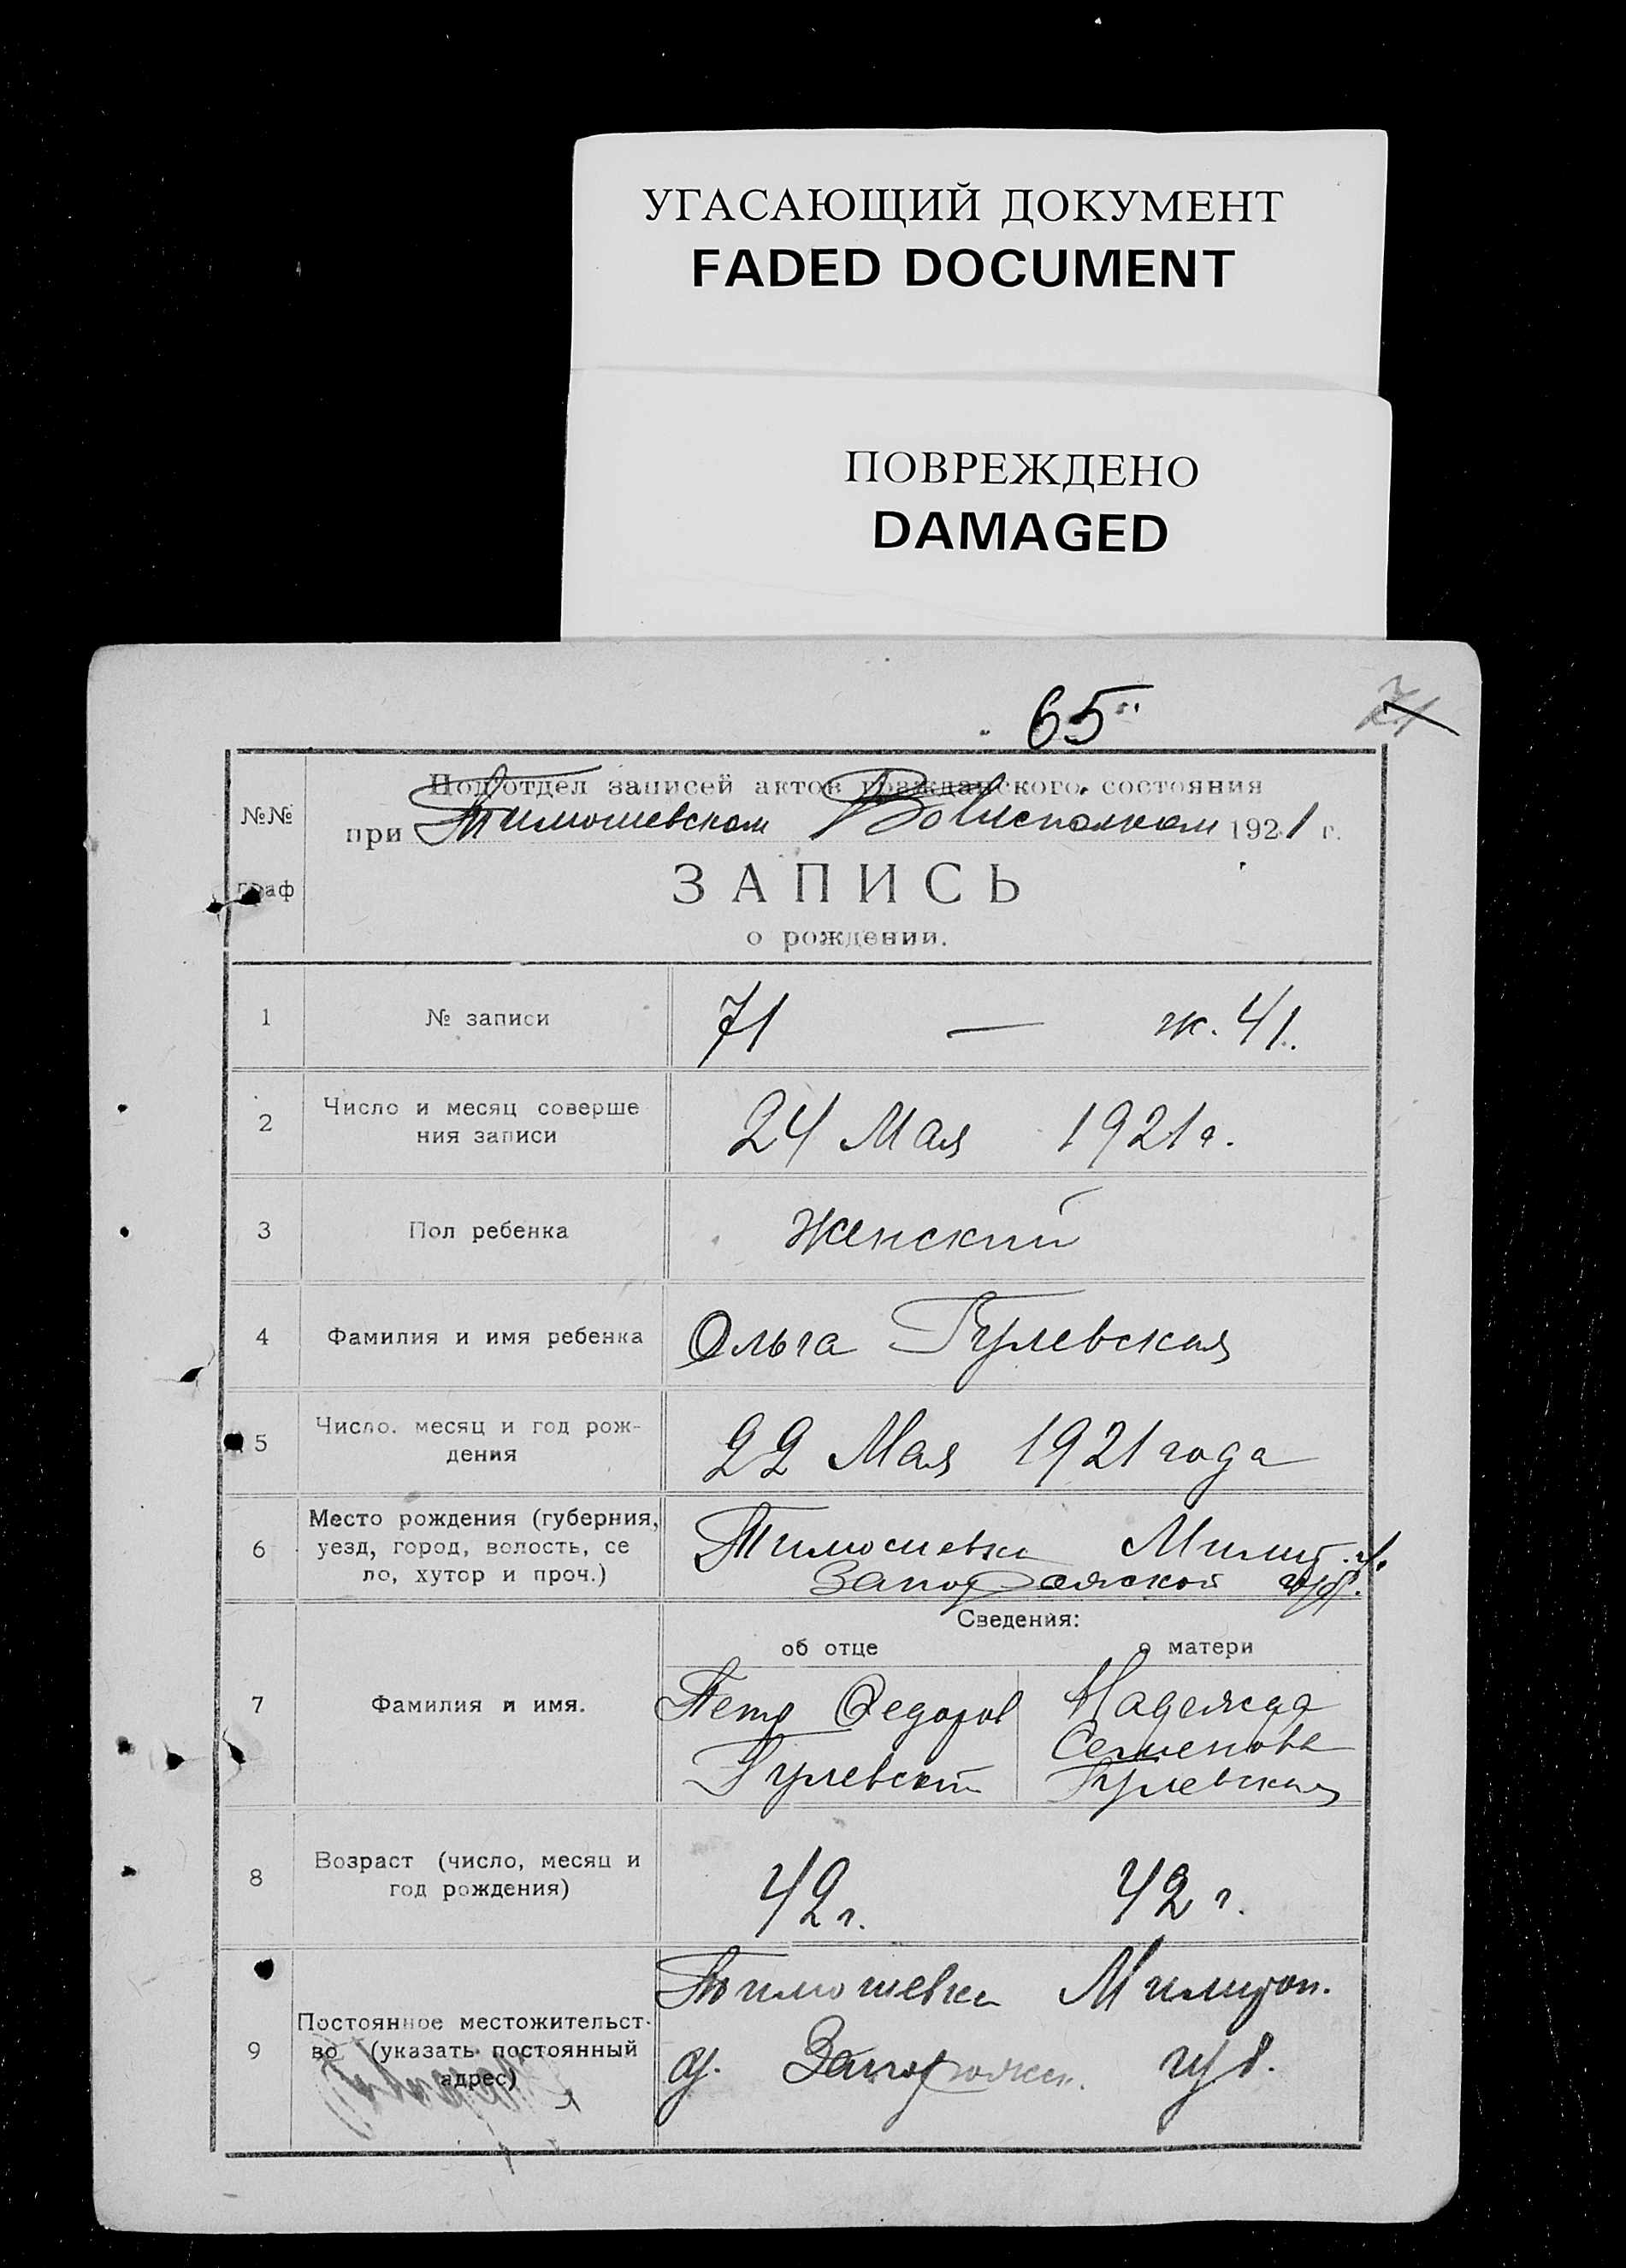 УГАСАЮЩИЙ ДОКУМЕНТ
FADED DOCUMENT
ПОВРЕЖДЕНО
DAMAGED
65
71
№№ граф
Подотдел записей актов гражданского состояния
при Тимошевском Волисполком 1921 г.
ЗАПИСЬ
о рождении.
1 № записи 71 — ж. 41.
2 Число и месяц соверше
ния записи 24 Мая 1921 г.
3 Пол ребенка Женский
4 Фамилия и имя ребенка Ольга Гулевская
5 Число, месяц и год рож-
дения 22 Мая 1921 года
6 Место рождения (губерния,
уезд, город, волость, се
ло, хутор и проч.) Тимошевка Мелит. у.
Запорожской губ.
Сведения:
об отце о матери
7 Фамилия и имя.
Петр Федоров
Гулевский
Надежда
Семенова
Гулевская
8 Возраст (число, месяц и
год рождения) 42 г. 42 г.
9 Постоянное местожительст-
во (указать постоянный
адрес)
Тимошевка Мелитоп.
у. Запорожск. губ.